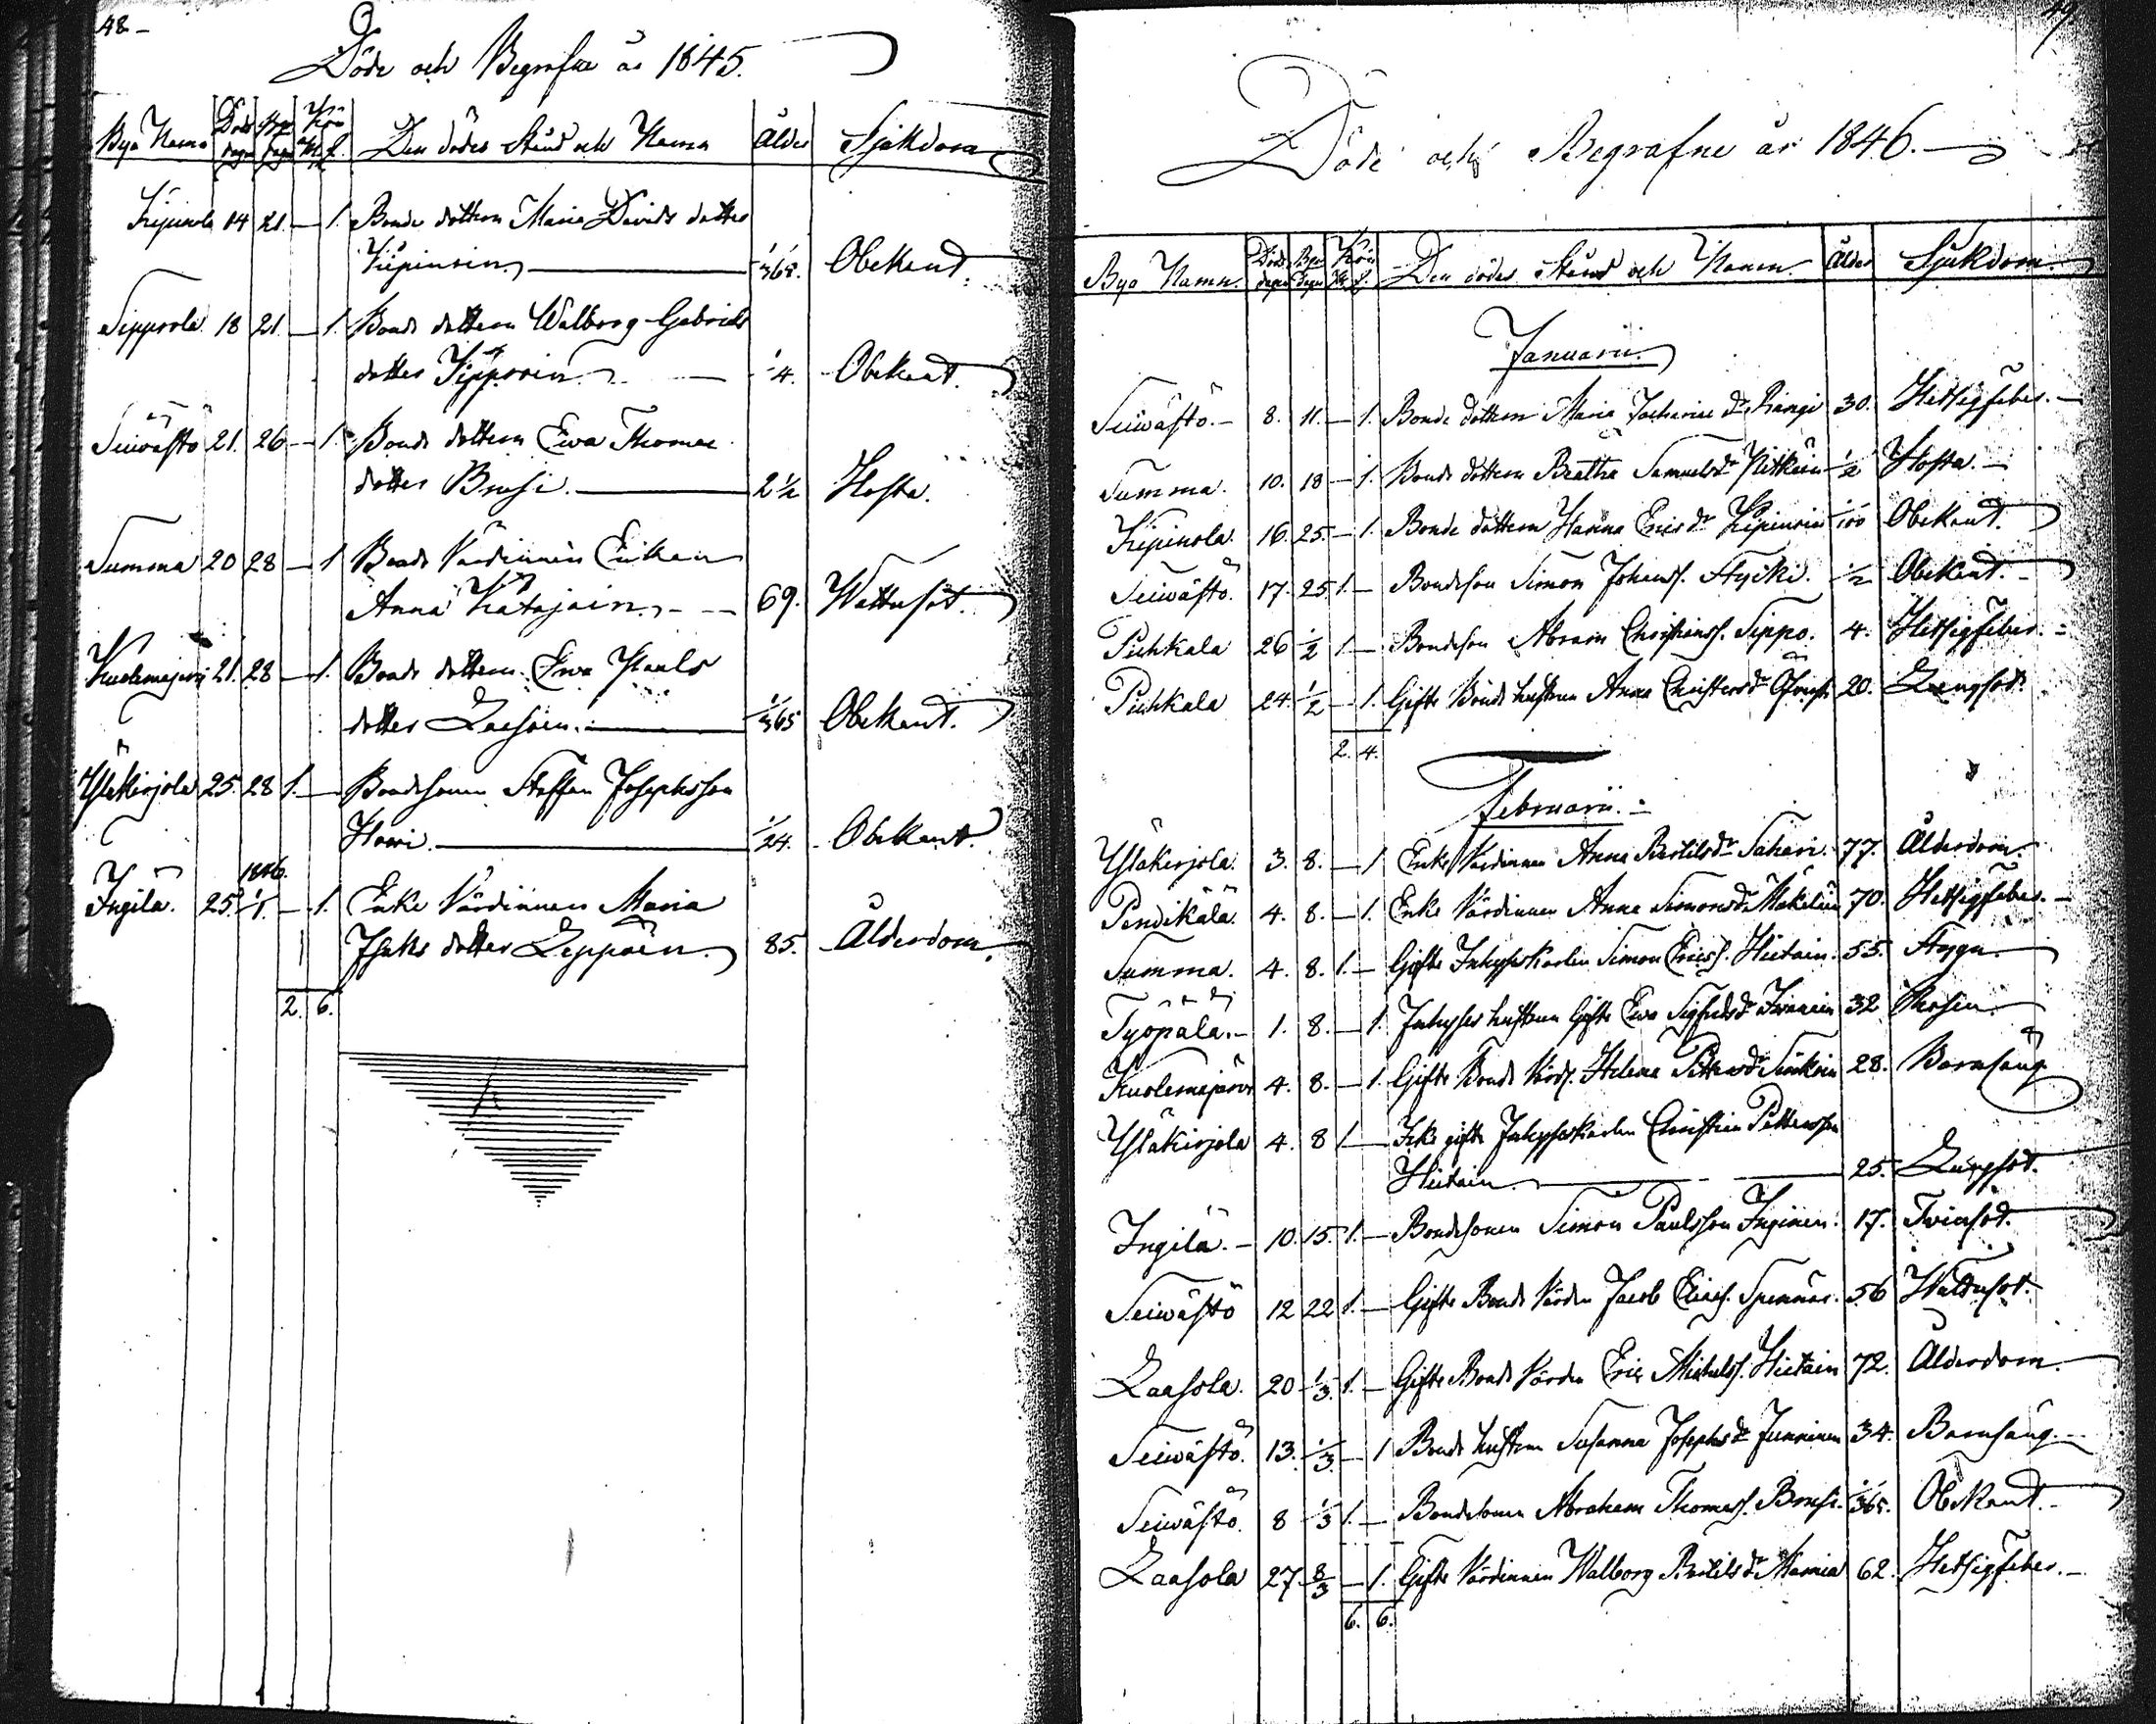 48 –
Döde och Begrafne år 1845.
Bya Namn Döds dagen Begr dagen Kön M. f. Den dödes Stånd och Namn Ålder Sjukdom
Kipinola 14 21. – 1. Bonde dottern Maria Davids dotter
Kipinoin 1/365. Obekant.
Sippola 18 21. – 1. Bonde dottern Walborg Gabriels
dotter Sipponin 1/4. Obekant.
Seiwästö 21. 26 – 1. Bonde dottern Ewa Thomæ
dotter Brusi. 2 1/2 Hosta.
Summa 20 28 – 1 Bonde Värdinnan Enkan
Anna Katajain. 69. Wattusot.
Kuolemajärvi 21. 28 – 1. Bonde dottern Ewa Pauls
dotter Laasoin. 1/365 Obekant.
Yläkirjola 25. 28 1. – Bondesonen Staffan Josephsson
Howi. 1/24. Obekant.
1846.
Ingilä. 25. 1/1. – 1. Enke Värdinnan Maria
Isaks dotter Leppäin. 85. Ålderdom.
2. 6.
49
Döde och Begrafne år 1846.
Bya Namn. Döds dagen Begr dagen Kön M. f. Den dödes Stånd och Namn. Ålder Sjukdom.
Januarii.
Seiwästö. – 8. 11. – 1. Bonde dottern Maria Zachariæ dr Rangi 30. Hetsigfeber. –
Summa. 10. 18 – 1. Bonde dottern Beatha Samuelsdr Pitkäin 1/2 Hosta. –
Kipinola. 16. 25. – 1. Bonde dottern Hanna Ericsdr Kipinoin 1/100 Obekant.
Seiwästö. 17. 25 1. – Bondeson Simon Johanss. Stycki. 1/2 Obekant. –
Pihkala 26 1/2 1. – Bondeson Abram Christianss. Sippo. 4. Hetsigfeber. –
Pihkala 24. 1/2 – 1. Gifte Bonde hustrun Anna Christersdr 20. Lungsot.
2. 4.
Februarii. –
Yläkirjola. 3. 8. – 1 Enke Värdinnan Anna Bertilsdr Sakari. 77. Ålderdom.
Pendikälä. 4. 8. – 1. Enke Värdinnan Anna Simonsdr Mäkeläin 70. Hetsigfeber. –
Summa. 4. 8. 1. – Gifte Inhysekarlen Simon Ericss. Hietain. 55. Stygn.
Työpälä. – 1. 8. – 1. Inhyses hustrun Gifte Ewa Sigfridsdr 32 Rosen.
Kuolemajärvi 4. 8. – 1. Gifte Bonde Värd. Helena Pettersdr 28. Barnsäng
Yläkirjola 4. 8 1. – Icke gifte Inhysekarlen Christian Pettersson
Hietain. 25. Lungsot.
Ingilä. – 10. 15. 1. – Bondesonen Simon Paulsson Inginen. 17. Tvinsot.
Seiwästö 12 22 1. – Gifte Bonde Värden Jacob Eliass. Spennar. 56 Wattusot.
Laasola. 20 1/3. 1. – Gifte Bonde Värden Eric Michelss. Hietain 72. Ålderdom.
Seiwästö. 13. 1/3. – 1 Bonde hustrun Susanna Josephsdr Junninen 34. Barnsäng. –
Seiwästö. 8 1/3 1. – Bondesonen Abraham Thomass. Brusi. 1/365. Obekant. –
Laasola 27 8/3 – 1. Gifte Värdinnan Walborg Bertilsdr 62. Hetsigfeber. –
6. 6.